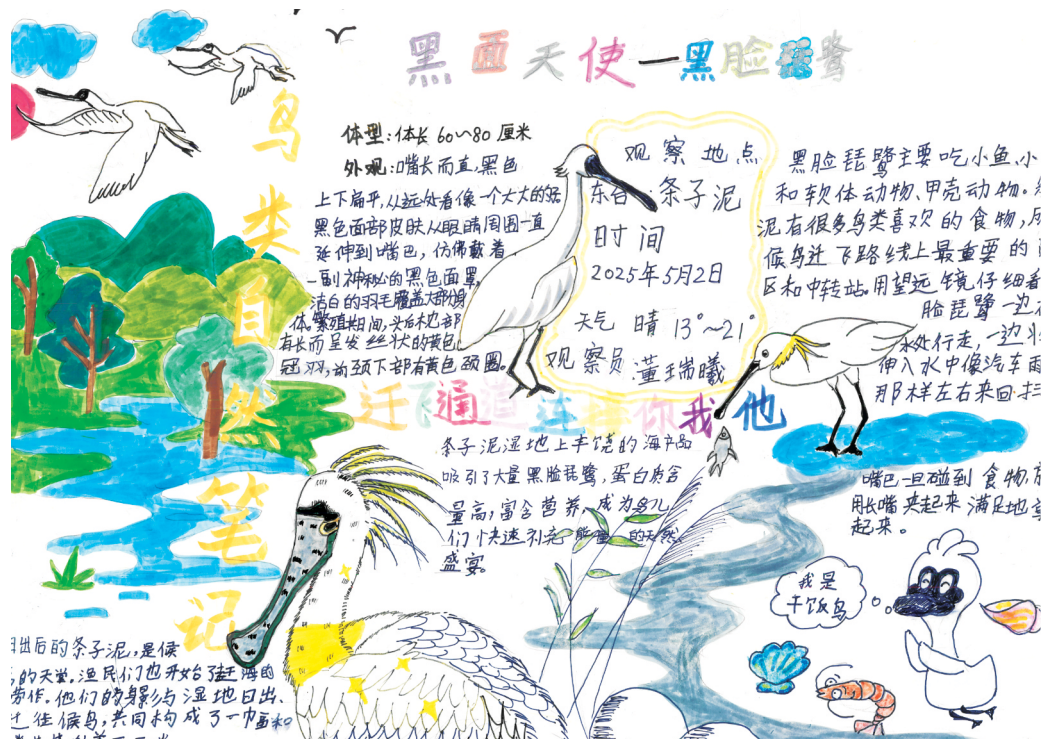 黑面天使一黑脸琵鹭
鸟类自然笔记
体型:体长60~80厘米
外观:嘴长而直,黑色
上下扁平,从远处看像一个大大的
黑色面部皮肤从眼睛周围一直
延伸到嘴巴,仿佛戴着
一副神秘的黑色面罩,
洁白的羽毛覆盖大部分身
体。繁殖期间,头后枕部
有长而呈发丝状的黄色
冠羽,前颈下部有黄色颈圈。
观察地点
东台 条子泥
时间
2025年5月2日
天气 晴 13°~21°
观察员:董瑞曦
黑脸琵鹭主要吃小鱼、小
和软体动物、甲壳动物。
泥有很多鸟类喜欢的食物,
候鸟迁飞路线上最重要的
区和中转站。用望远镜仔细看
脸琵鹭一边在
水处行走,一边
伸入水中像汽车雨
那样左右来回扫
嘴巴一旦碰到食物,
用长嘴夹起来满足地
起来。
迁飞通道连接你我他
条子泥湿地上丰饶的海产品
吸引了大量黑脸琵鹭,蛋白质含
量高,富含营养,成为鸟儿
们快速补充能量的天然
盛宴。
我是
干饭鸟
日出后的条子泥,是候
的天堂。渔民们也开始了赶海的
劳作。他们的身影与湿地日出、
过往候鸟,共同构成了一幅和